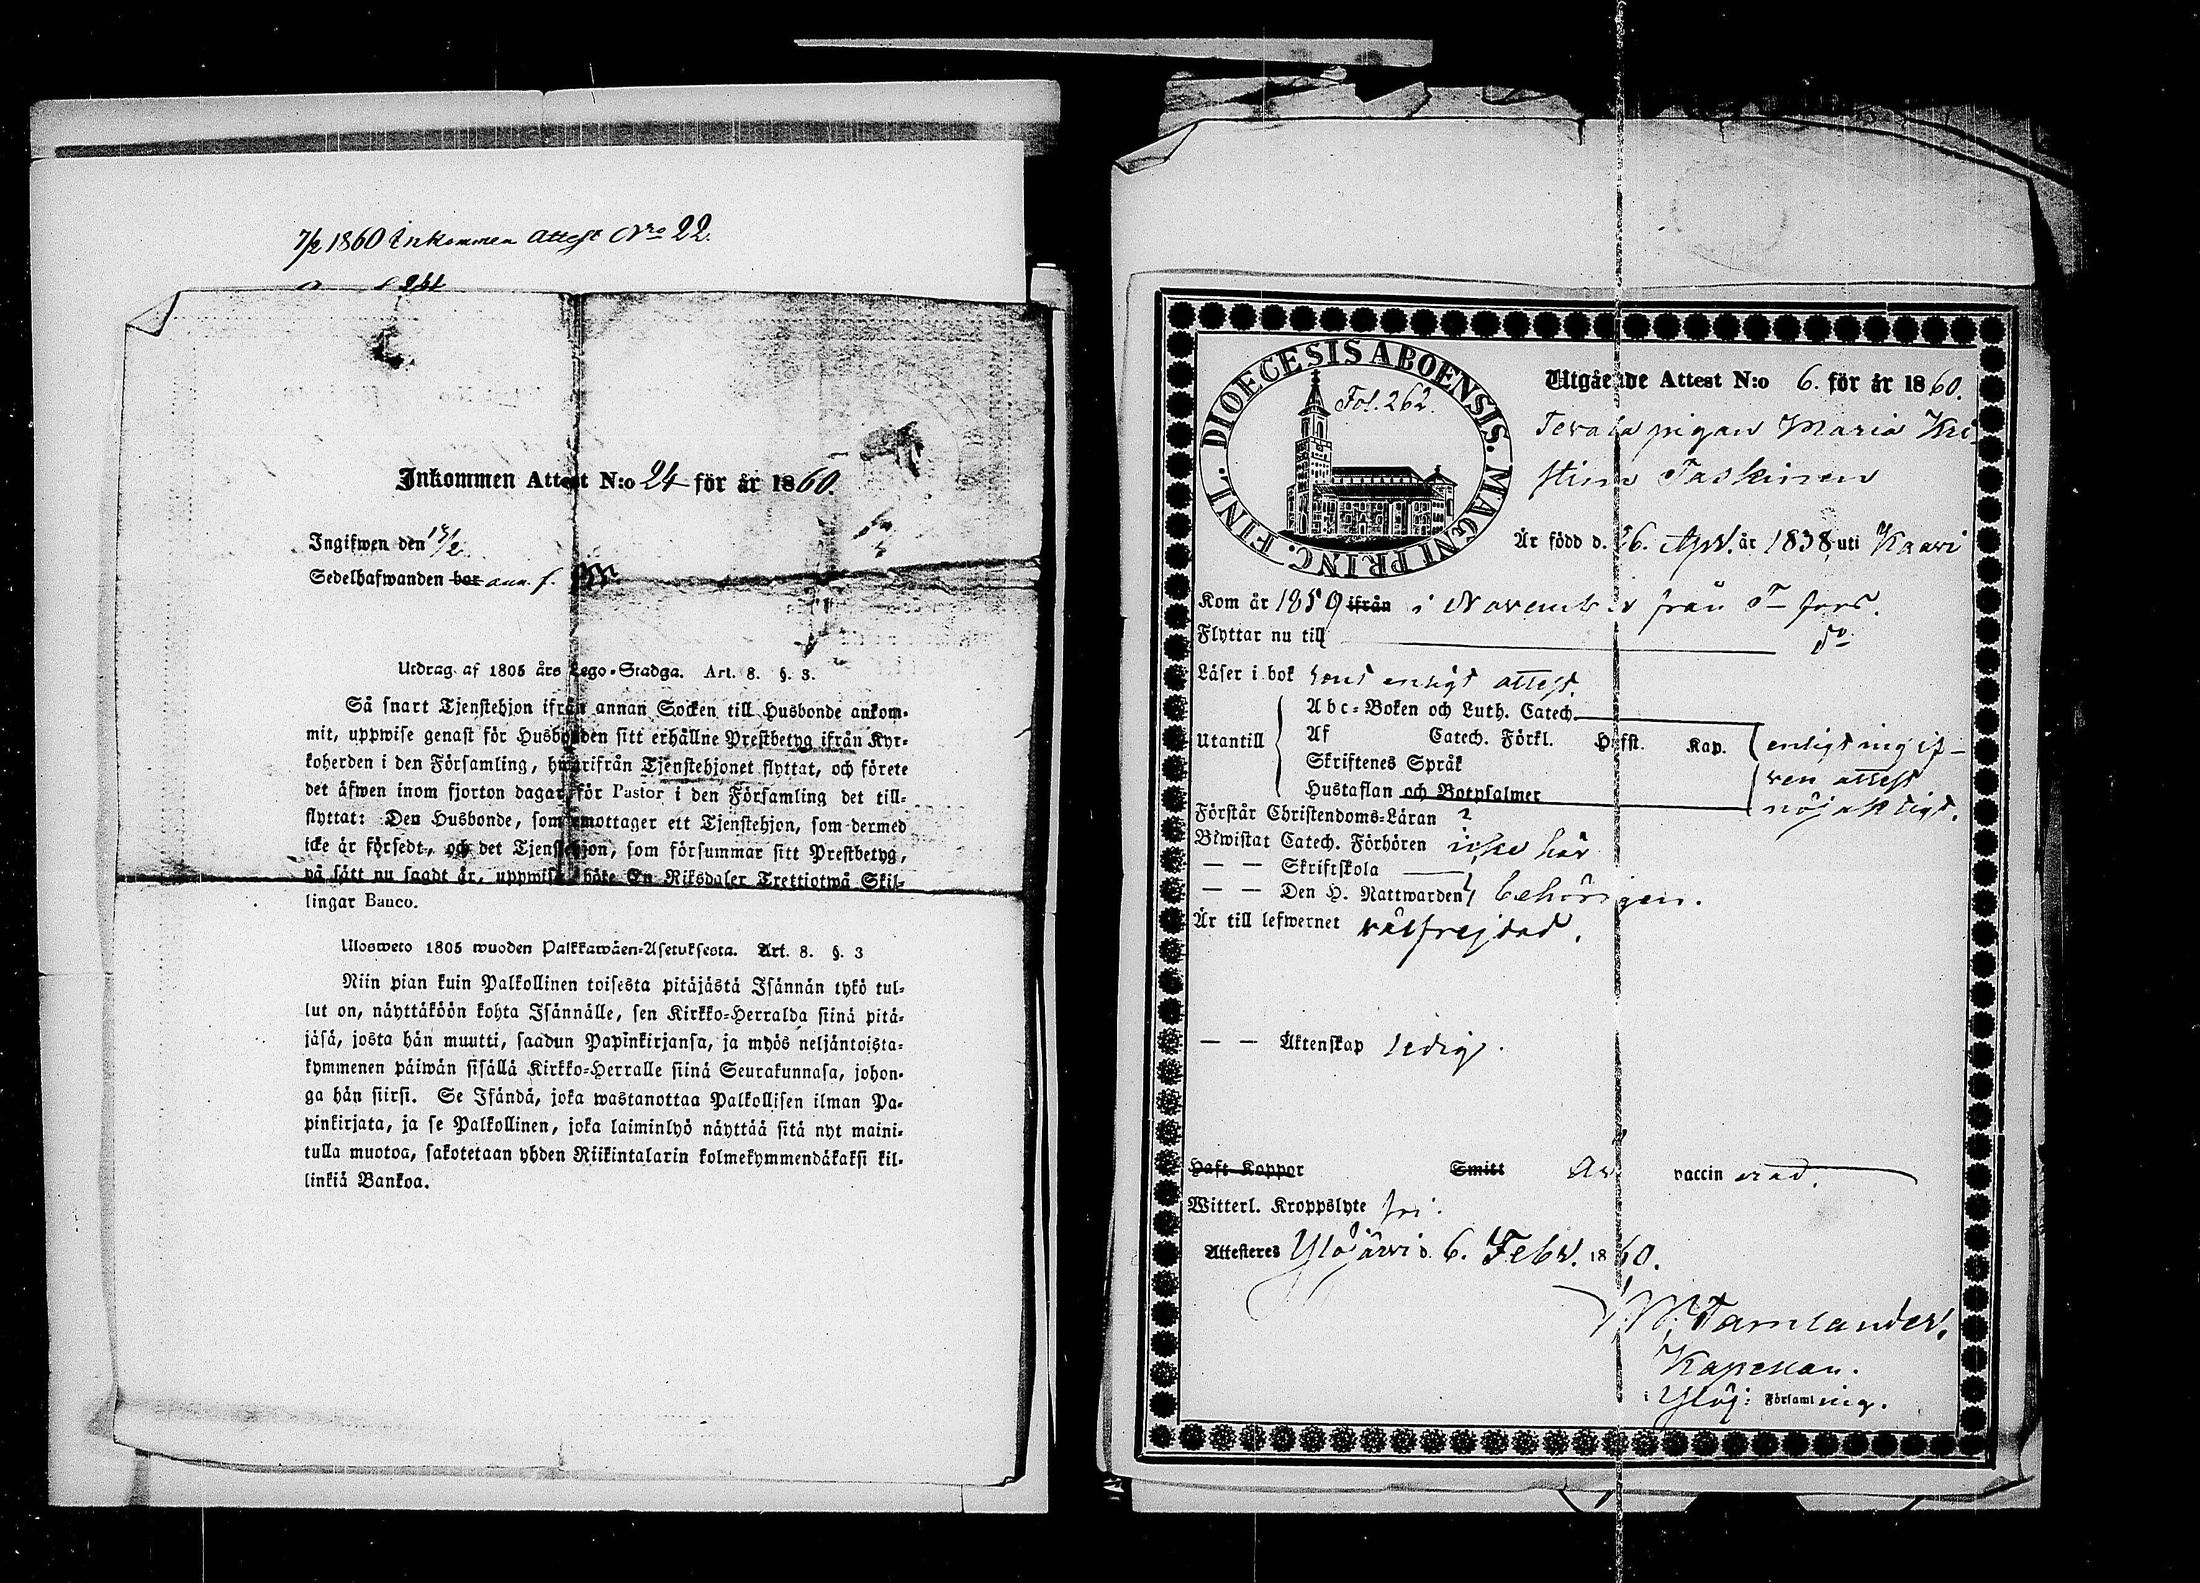 7/2 1860 Inkommen Attest Nro 22.
Inkommen Attest N:o 24 för år 1860.
Ingifwen den 13/2
Sedelhafwanden bor ann. f.
Utdrag af 1805 års Lego-Stadga. Art. 8. §. 3.
Så snart Tjenstehjon ifrån annan Socken till Husbonde ankom-
mit, uppwise genast för Husbonden sitt erhållne Prestbetyg ifrån Kyr-
koherden i den Församling, hwarifrån Tjenstehjonet flyttat, och förete
det äfwen inom fjorton dagar för Pastor i den Församling det till-
flyttat: Den Husbonde, som emottager ett Tjenstehjon, som dermed
icke är försedt, och det Tjenstehjon, som försummar sitt Prestbetyg,
på sätt nu sagdt är, uppwisa, böte En Riksdaler Trettiotwå Skil-
lingar Banco.
Ulosweto 1805 wuoden Palkkawäen-Asetuksesta. Art. 8. §. 3
Niin pian kuin Palkollinen toisesta pitäjästä Isännän tykö tul-
lut on, näyttäköön kohta Isännälle, sen Kirkko-Herralda siinä pitä-
jäsä, josta hän muutti, saadun Papinkirjansa, ja myös neljäntoista-
kymmenen päiwän sisällä Kirkko-Herralle siinä Seurakunnasa, johon-
ga hän siirsi. Se Isändä, joka wastanottaa Palkollisen ilman Pa-
pinkirjata, ja se Palkollinen, joka laiminlyö näyttää sitä nyt maini-
tulla muotoa, sakotetaan yhden Riikintalarin kolmekymmendäkaksi kil-
linkiä Bankoa.
FINL. DIOECESIS ABOENSIS. MAGNI PRINC.
Fol. 262.
Utgående Attest N:o 6. för år 1860.
pigan Maria Kri-
stina Taskinen
Är född d. 26. Apr. år 1838 uti Kaavi
Kom år 1859 ifrån i November från T-fors.
Flyttar nu till do
Läser i bok enligt attest.
Utantill
Abc-Boken och Luth. Catech.
Af Catech. Förkl. Hufst. Kap.
Skriftenes Språk
Hustaflan och Botpsalmer
enligt ingif-
ven attest
nöjaktigt.
Förstår Christendoms-Läran ?
Biwistat Catech. Förhören icke här
— — Skriftskola
— — Den H. Nattwarden behörigen.
Är till lefwernet välfrejdad.
— — Äktenskap ledig.
Haft Koppor Smitt Är vaccinerad.
Witterl. Kroppslyte fri.
Attesteres Ylöjärvi d. 6. Febr. 1860.
Tamlander.
Kapellan.
i Ylöj: Församling.